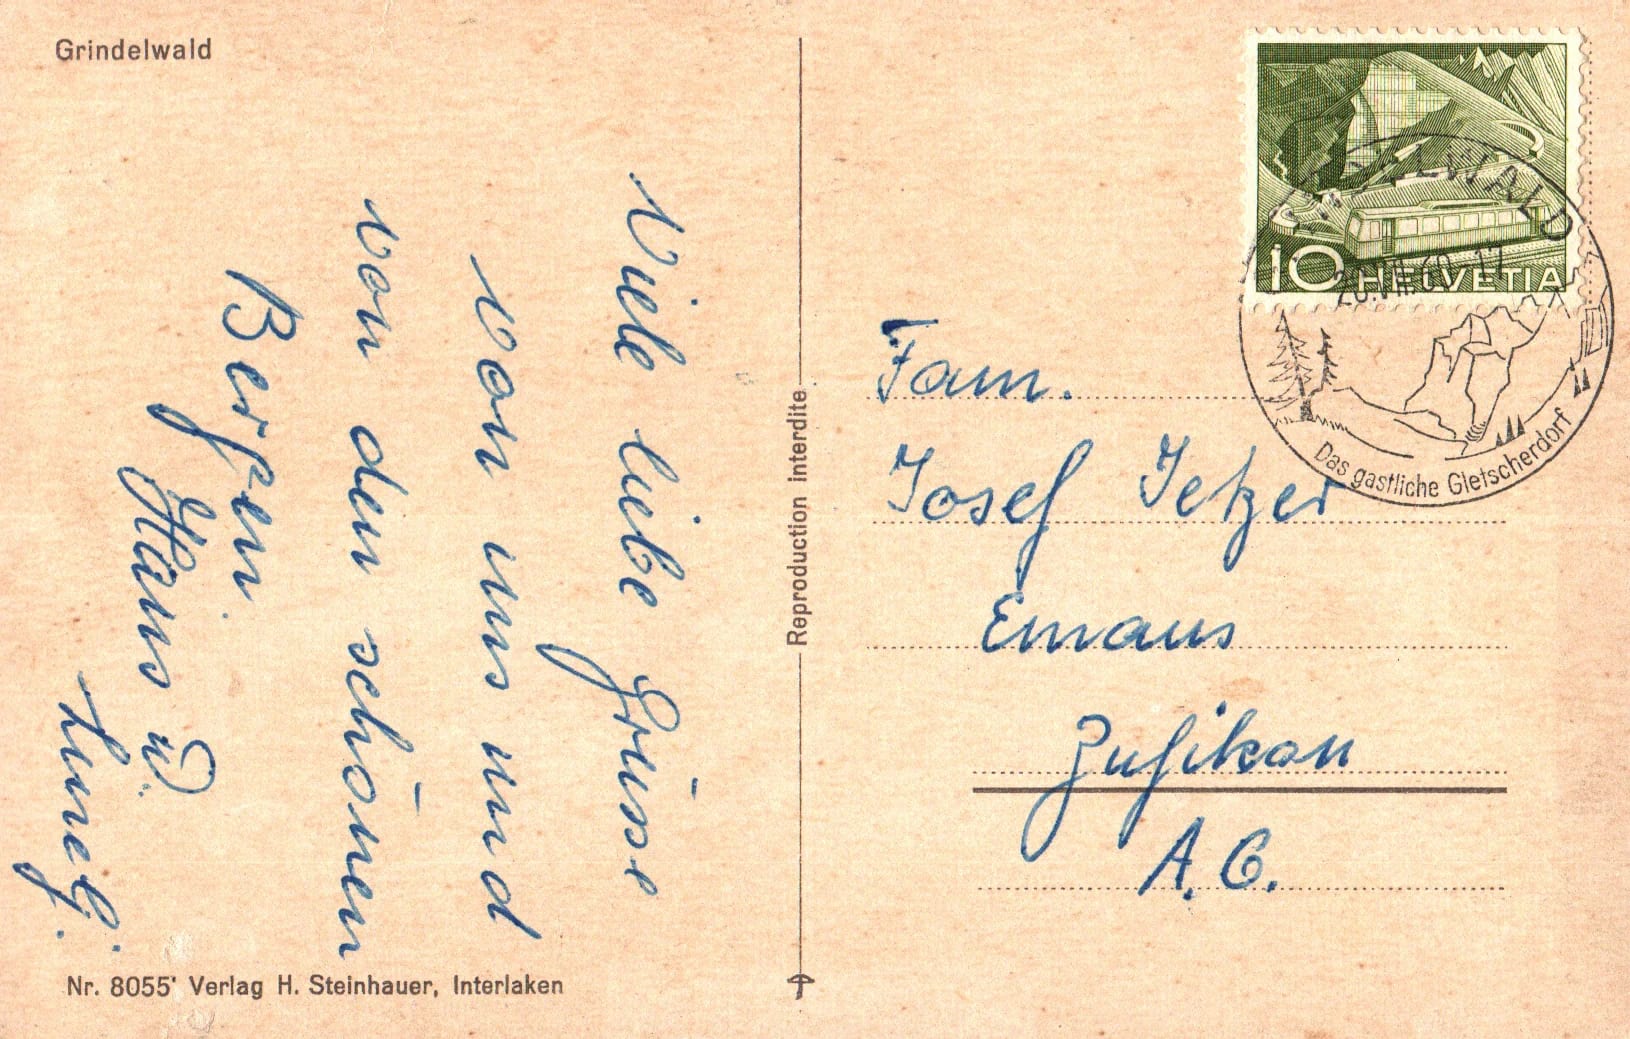 Grindelwald
Viele liebe Grüsse
von uns und
von den schönen
Bergen.
Hans u.
Reproduction interdite
Nr. 8055 Verlag H. Steinhauer, Interlaken
10 HELVETIA
Das gastliche Gletscherdorf
Fam.
Josef Jetzer
Emaus
Zufikon
A. G.